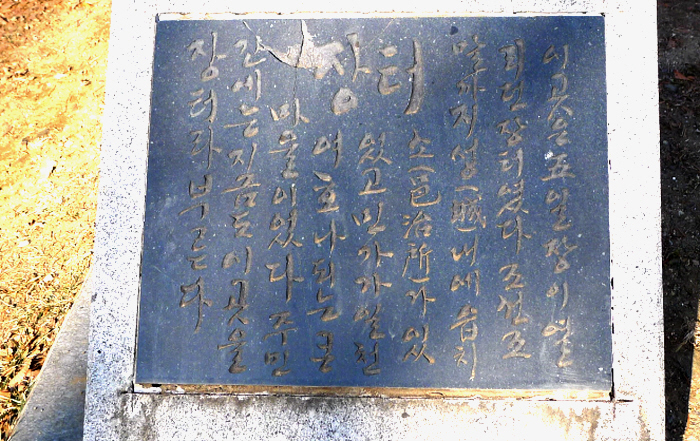 장터
이곳은 五일장이 열
리던 장터였다 조선조
말까지 성(城)내에 읍치
소(邑治所)가 있
었고 민가가 일천
여호나 되는 큰
마을이었다 주민
간에는 지금도 이곳을
장터라 부른다